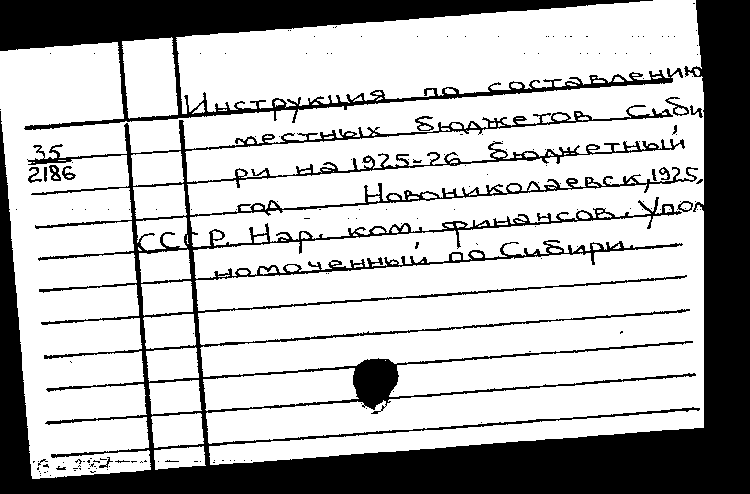 Инструкция по составлению
местных бюджетов Сиби
35
2186
ри на 1925-26 бюджетный
год Новониколаевск, 1925,
СССР. Нар. ком. финансов. Упол
номоченный по Сибири.